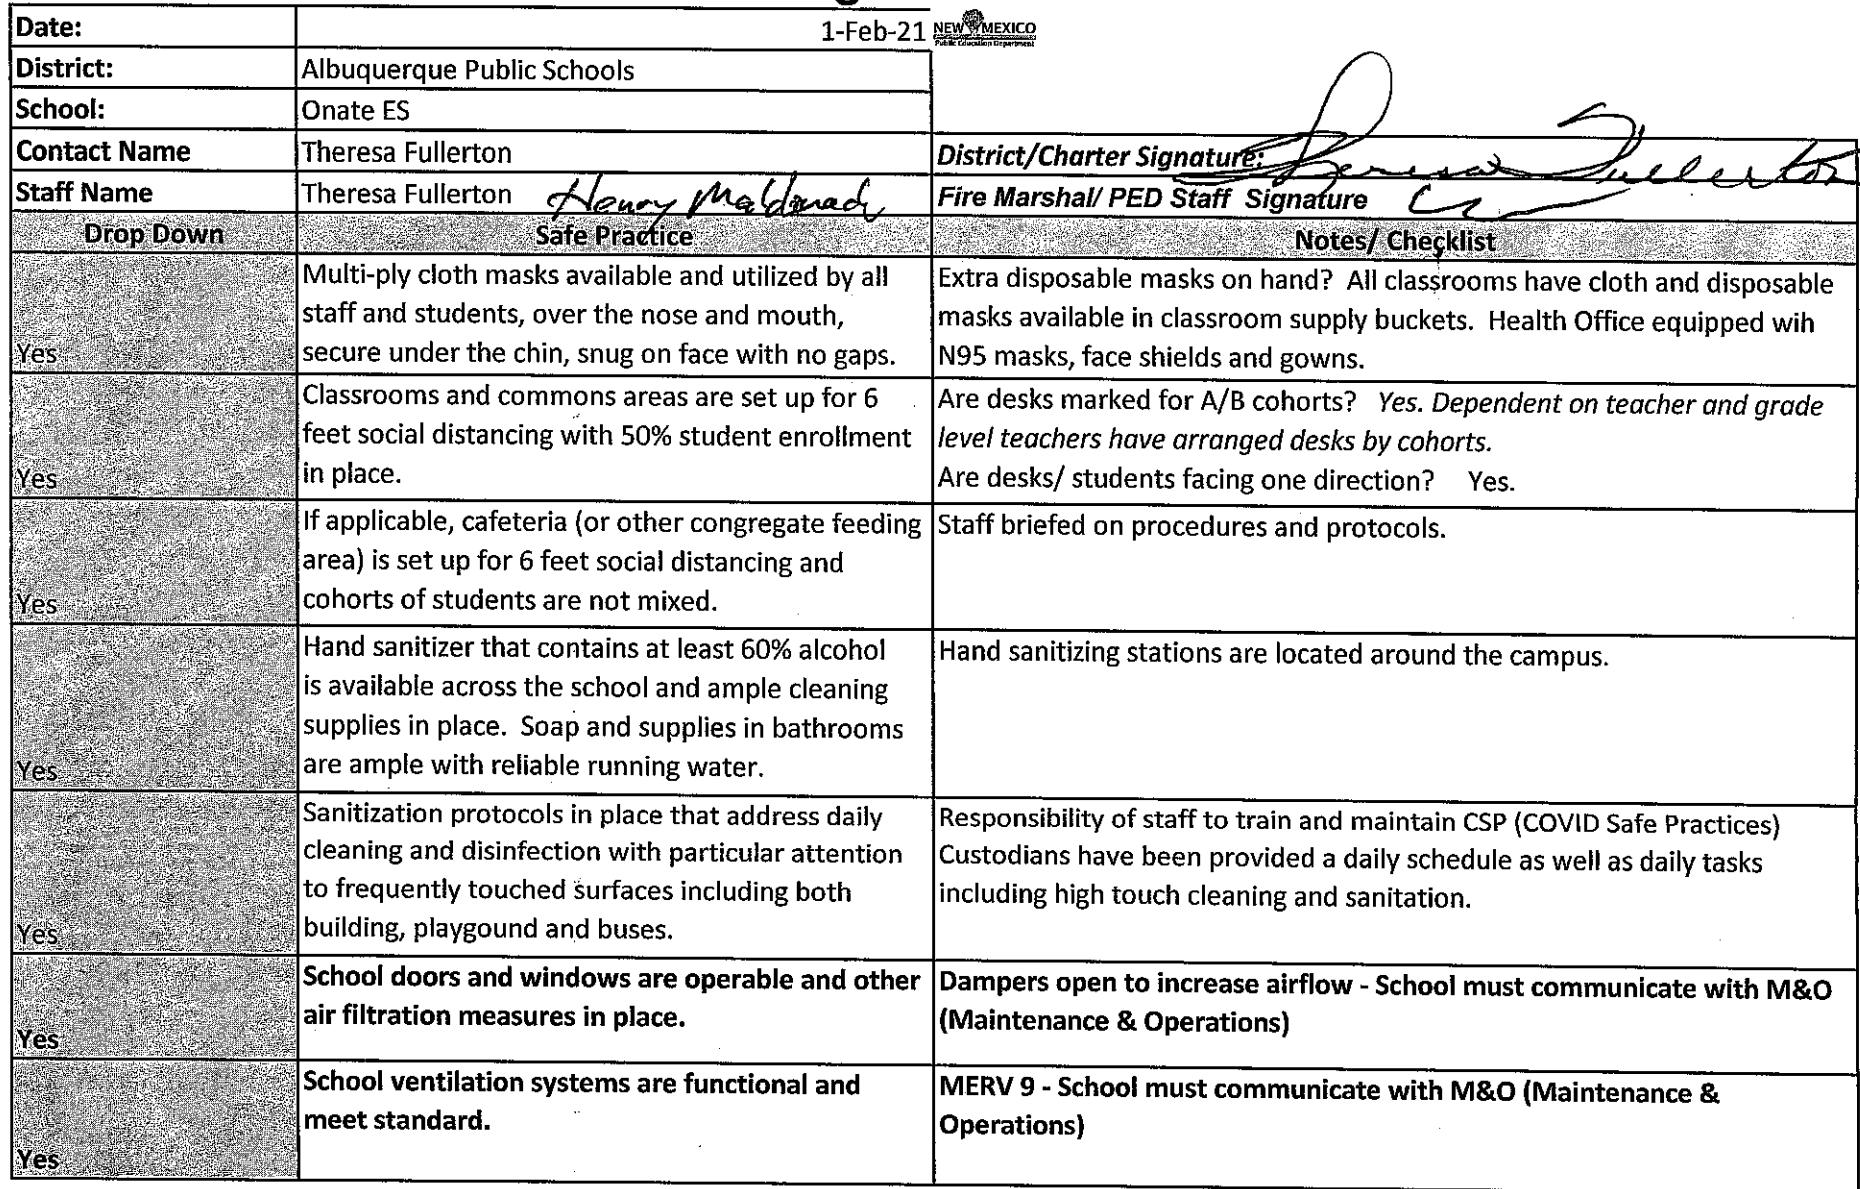 Date: 1-Feb-21 NEW MEXICO
Public Education Department
District: Albuquerque Public Schools
School: Onate ES
Contact Name Theresa Fullerton District/Charter Signature: Theresa Fullerton
Staff Name Theresa Fullerton Henry Maldonado Fire Marshal/ PED Staff Signature
Drop Down Safe Practice Notes/ Checklist
Yes
Multi-ply cloth masks available and utilized by all
staff and students, over the nose and mouth,
secure under the chin, snug on face with no gaps.
Extra disposable masks on hand? All classrooms have cloth and disposable
masks available in classroom supply buckets. Health Office equipped wih
N95 masks, face shields and gowns.
Yes
Classrooms and commons areas are set up for 6
feet social distancing with 50% student enrollment
in place.
Are desks marked for A/B cohorts? Yes. Dependent on teacher and grade
level teachers have arranged desks by cohorts.
Are desks/ students facing one direction? Yes.
Yes
If applicable, cafeteria (or other congregate feeding
area) is set up for 6 feet social distancing and
cohorts of students are not mixed.
Staff briefed on procedures and protocols.
Yes
Hand sanitizer that contains at least 60% alcohol
is available across the school and ample cleaning
supplies in place. Soap and supplies in bathrooms
are ample with reliable running water.
Hand sanitizing stations are located around the campus.
Yes
Sanitization protocols in place that address daily
cleaning and disinfection with particular attention
to frequently touched surfaces including both
building, playgound and buses.
Responsibility of staff to train and maintain CSP (COVID Safe Practices)
Custodians have been provided a daily schedule as well as daily tasks
including high touch cleaning and sanitation.
Yes
School doors and windows are operable and other
air filtration measures in place.
Dampers open to increase airflow - School must communicate with M&O
(Maintenance & Operations)
Yes
School ventilation systems are functional and
meet standard.
MERV 9 - School must communicate with M&O (Maintenance &
Operations)